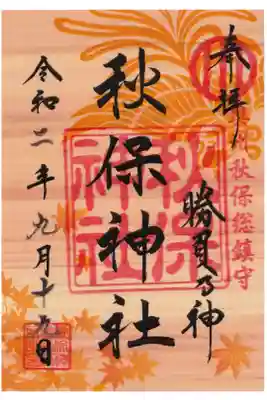 奉拝
秋保総鎮守
勝負の神
秋保神社
秋保神社
令和二年九月十九日